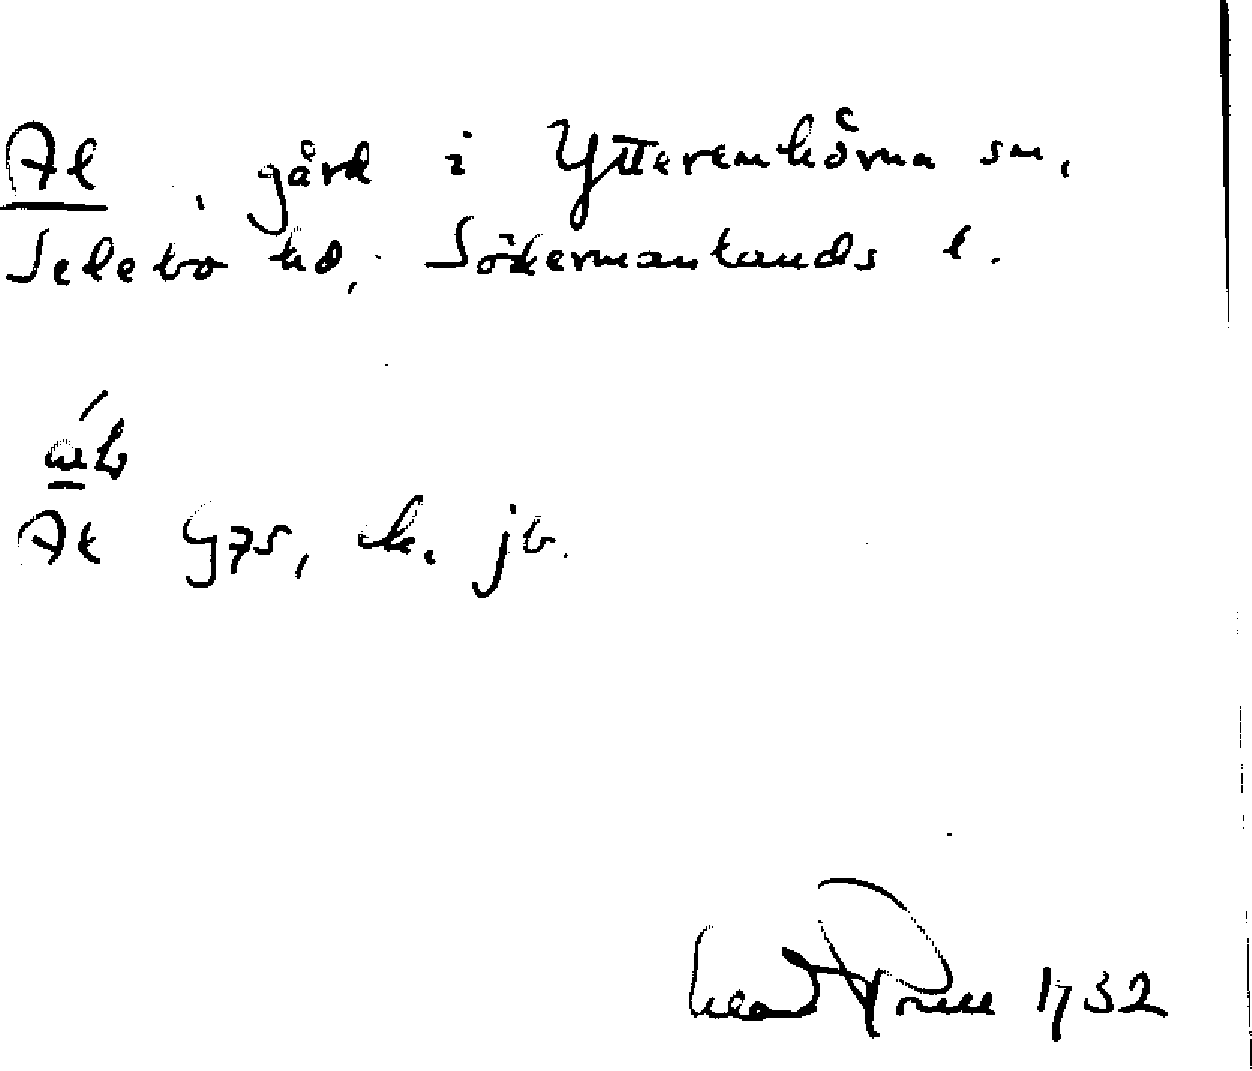 Al , gård i Ytterenhörna sn,
Selebo hd, Södermanlands l.
Al G75, k. jb.
1932